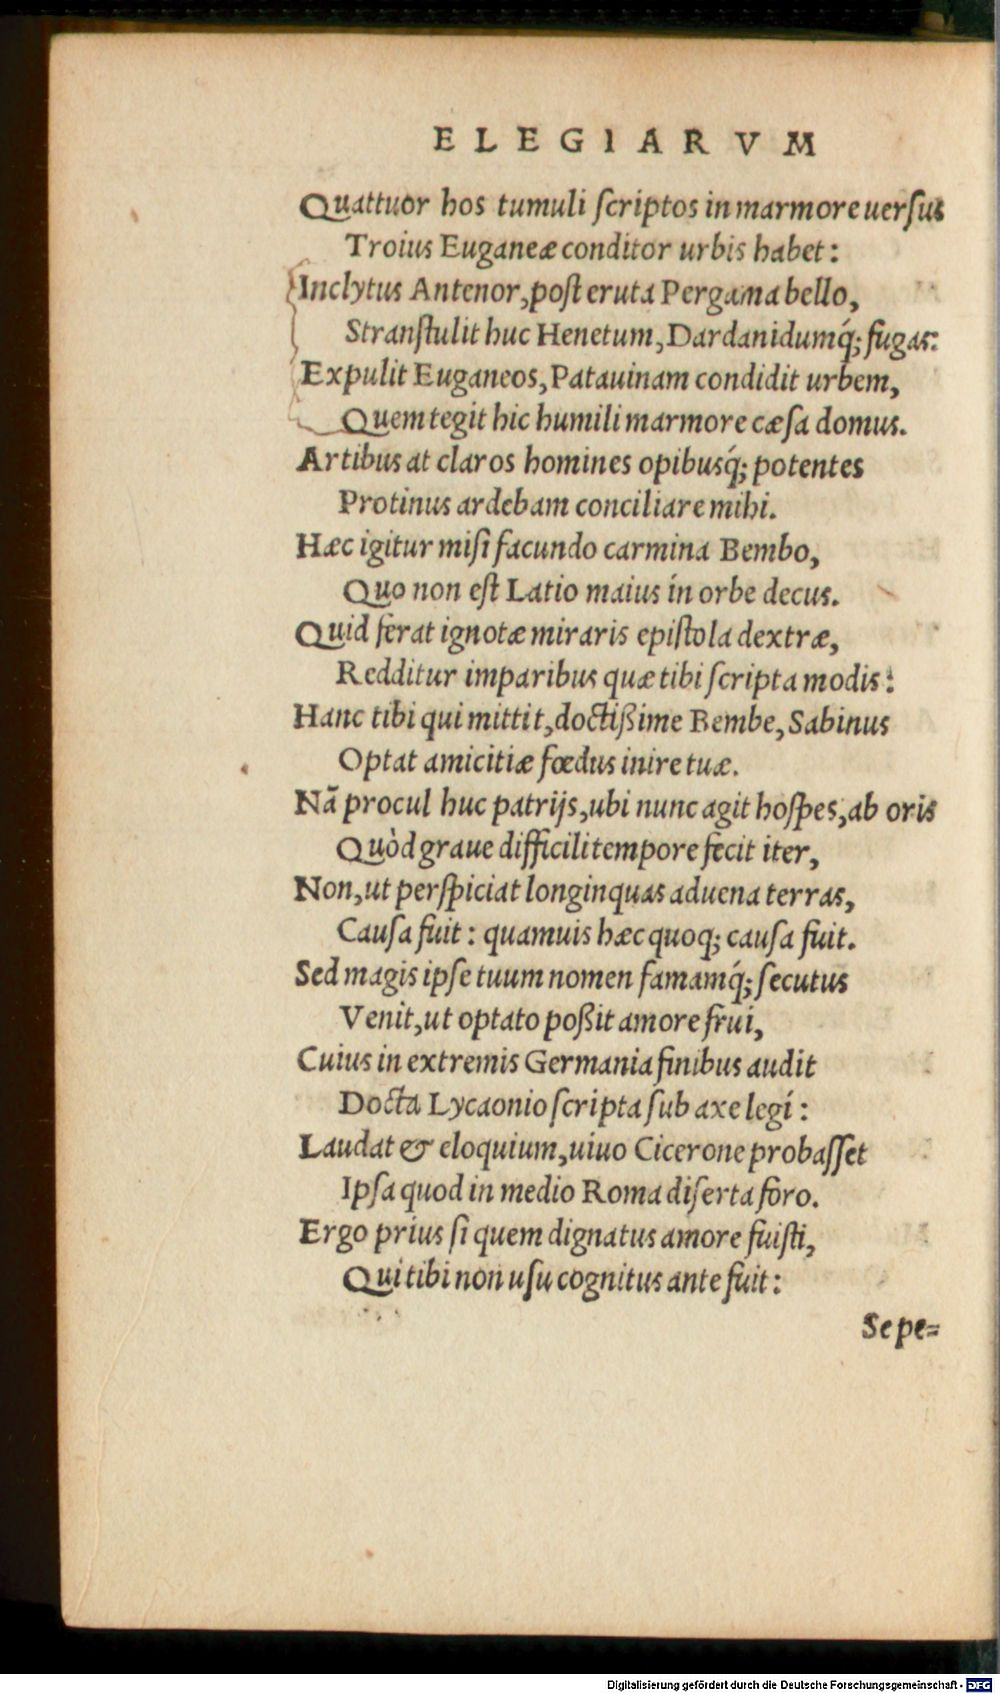 ELEGIARVM
Quattuor hos tumuli ſcriptos in marmore uerſus
Troius Euganeæ conditor urbis habet:
Inclytus Antenor, poſt eruta Pergama bello,
Stranſtulit huc Henetum, Dardanidumq́; fugas:
Expulit Euganeos, Patauinam condidit urbem,
Quem tegit hic humili marmore cæſa domus.
Artibus at claros homines opibusq́; potentes
Protinus ardebam conciliare mihi.
Hæc igitur miſi facundo carmina Bembo,
Quo non eſt Latio maius in orbe decus.
Quid ferat ignotæ miraris epiſtola dextræ,
Redditur imparibus quæ tibi ſcripta modis:
Hanc tibi qui mittit, doctißime Bembe, Sabinus
Optat amicitiæ fœdus inire tuæ.
Nã procul huc patrijs, ubi nunc agit hoſpes, ab oris
Quòd graue difficili tempore fecit iter,
Non, ut perſpiciat longinquas aduena terras,
Cauſa fuit: quamuis hæc quoq; cauſa fuit.
Sed magis ipſe tuum nomen famamq́; ſecutus
Venit, ut optato poßit amore frui,
Cuius in extremis Germania finibus audit
Docta Lycaonio ſcripta ſub axe legi:
Laudat & eloquium, uiuo Cicerone probaſſet
Ipſa quod in medio Roma diſerta foro.
Ergo prius ſi quem dignatus amore fuiſti,
Qui tibi non uſu cognitus ante fuit:
Sepe=
Digitalisierung gefördert durch die Deutsche Forschungsgemeinschaft - DFG